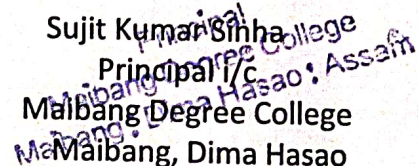 Sujit Kumar Sinha
Principal i/c
Maibang Degree College
Maibang, Dima Hasao
Principal
Maibang Degree College
Maibang : Dima Hasao : Assam